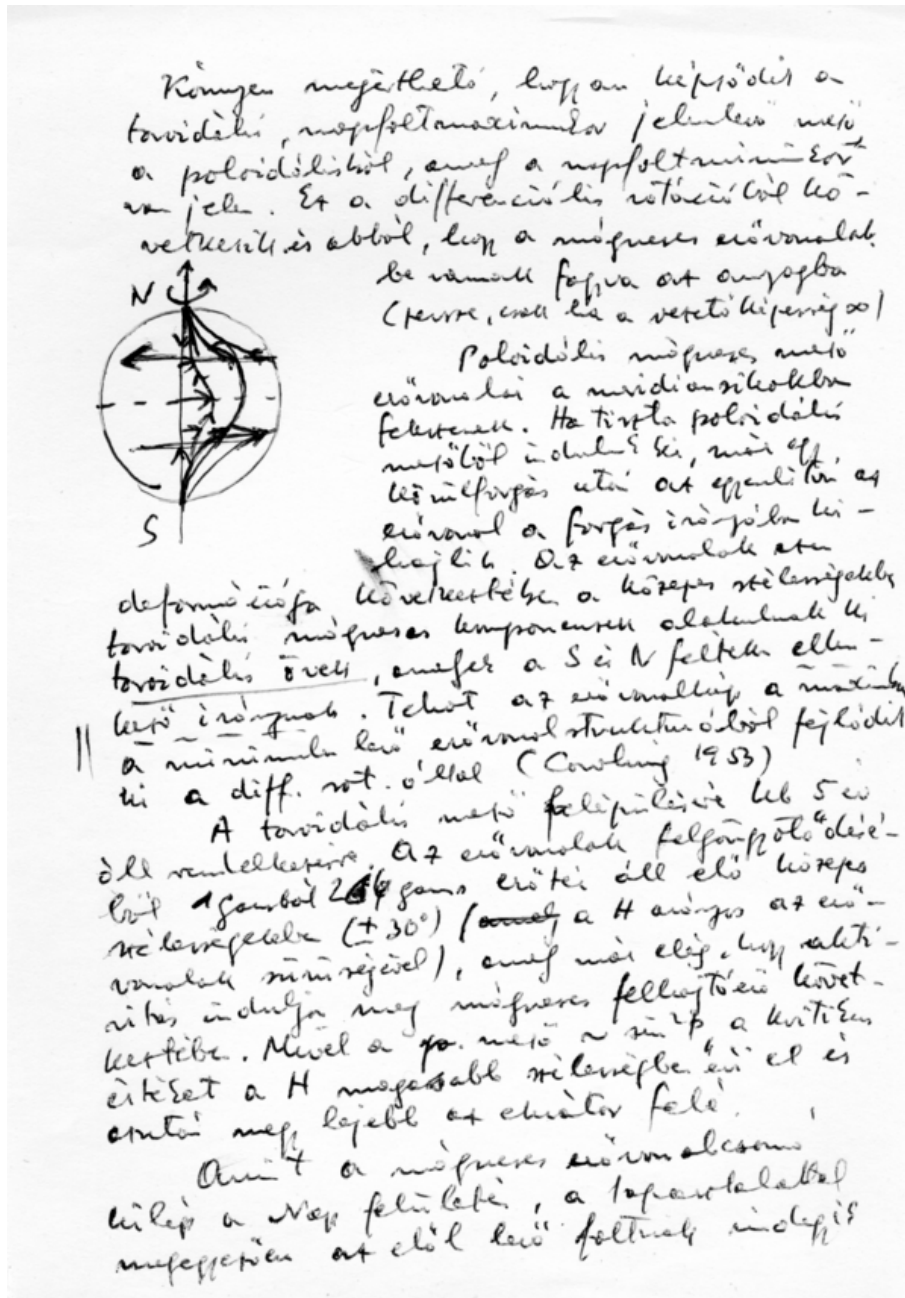 Könnyen megérthető, hogyan képződik a
toroidális, napfoltmaximumkor jelenlevő mező
a poloidálisból, amely a napfoltminimumkor
van jelen. Ez a differenciális rotációból kö-
vetkezik és abból, hogy a mágneses erővonalak
be vannak fagyva az anyagba
(persze, csak ha a vezetőképesség ∞)
N
Poloidális mágneses mező
erővonalai a meridiánsíkokban
fekszenek. Ha tiszta poloidális
mezőből indulunk ki, már egy
körülforgás után az egyenlítőn az
erővonal a forgás irányába ki-
hajlik. Az erővonalak ezen
S
deformációja következtében a közepes szélességekben
toroidális mágneses komponensek alakulnak ki
toroidális övek, amelyek a S és N féltekén ellen-
kező irányúak. Tehát az erővonalkép a maximumban
a minimumban levő erővonalstruktúrából fejlődik
ki a diff. rot. által (Cowling 1953)
A toroidális mező felépülésére kb 5 év
áll rendelkezésre. Az erővonalak felgöngyölődésé-
ből 1 gaussból gauss erőtér áll elő közepes
szélességekben (± 30°) (a H arányos az erő-
vonalak sűrűségével), amely már elég, hogy akti-
vitás induljon meg mágneses felhajtóerő követ-
keztében. Mivel a mező ~ sin²φ a kritikus
értéket a H magasabb szélességben éri el és
azután megy lejjebb az ekvátor felé.
Amint a mágneses erővonalcsomó
kilép a Nap felületén, a tapasztalattal
megegyezően az elől levő foltnak mindegyik